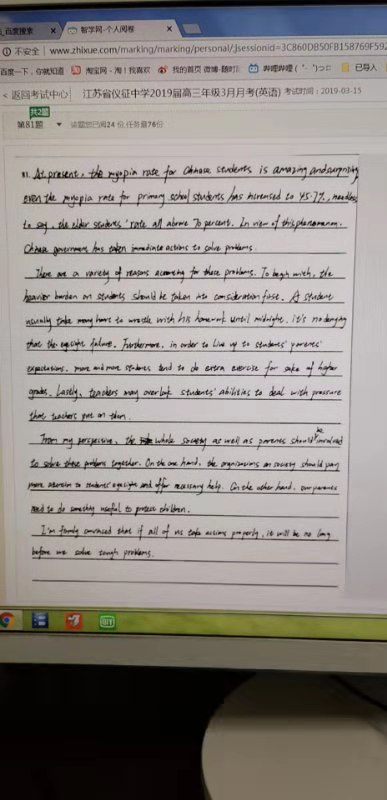 百度搜索
智学网-个人阅卷
不安全 www.zhixue.com/marking/marking/personal/;jsessionid=3C860DB50FB158769F592
百度一下，你就知道 淘宝网 - 淘！我喜欢 我的首页 微博-随时 哔哩哔哩 ( ゜- ゜)つロ 已导入
< 返回考试中心 江苏省仪征中学2019届高三年级3月月考(英语) 考试时间：2019-03-15
共2题
第81题 该题您已阅24份,任务量76份
81. At present, the myopia rate for Chinese students is amazing and surprising
even the myopia rate for primary school students has increased to 45.7%, needless
to say, the elder students' rate all above 70 percent. In view of this phenomenon,
Chinese government has taken immediate actions to solve problems.
There are a variety of reasons accounting for these problems. To begin with, the
heavier burden on students should be taken into consideration first. A student
usually take many hours to wrestle with his homework until midnight. it's no denying
that the eyesight failure. Furthermore, in order to live up to students' parents'
expectations, more and more students tend to do extra exercise for sake of higher
grades. Lastly, teachers may overlook students' abilities to deal with pressure
that teachers put on them.
From my perspective, the whole society as well as parents should be involved
to solve these problems together. On the one hand, the organizations on society should pay
more attention to students' eyesight and offer necessary help. On the other hand, our parents
need to do something useful to protect children.
I'm firmly convinced that if all of us take actions properly, it will be no long
before we solve tough problems.